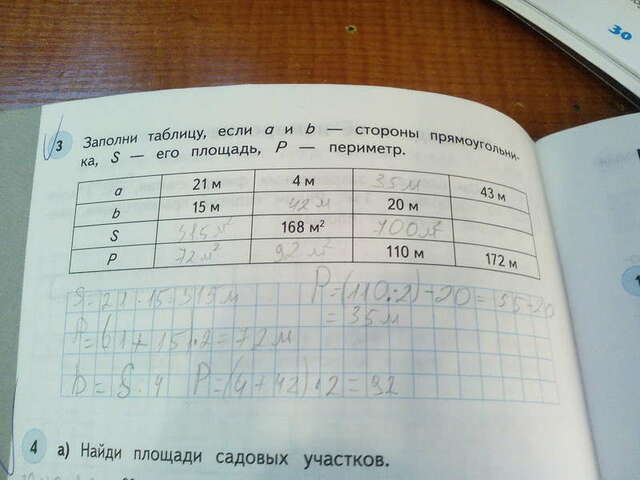 30
3 Заполни таблицу, если a и b — стороны прямоугольни-
ка, S — его площадь, P — периметр.
a 21 м 4 м 35 м 43 м
b 15 м 42 м 20 м
S 315 м² 168 м² 700 м²
P 72 м² 92 м² 110 м 172 м
S=21·15=315 м P=(110:2)-20=55-20
=35 м
=72 м
b = S · 4 P=(4+42)·2=92
4 а) Найди площади садовых участков.